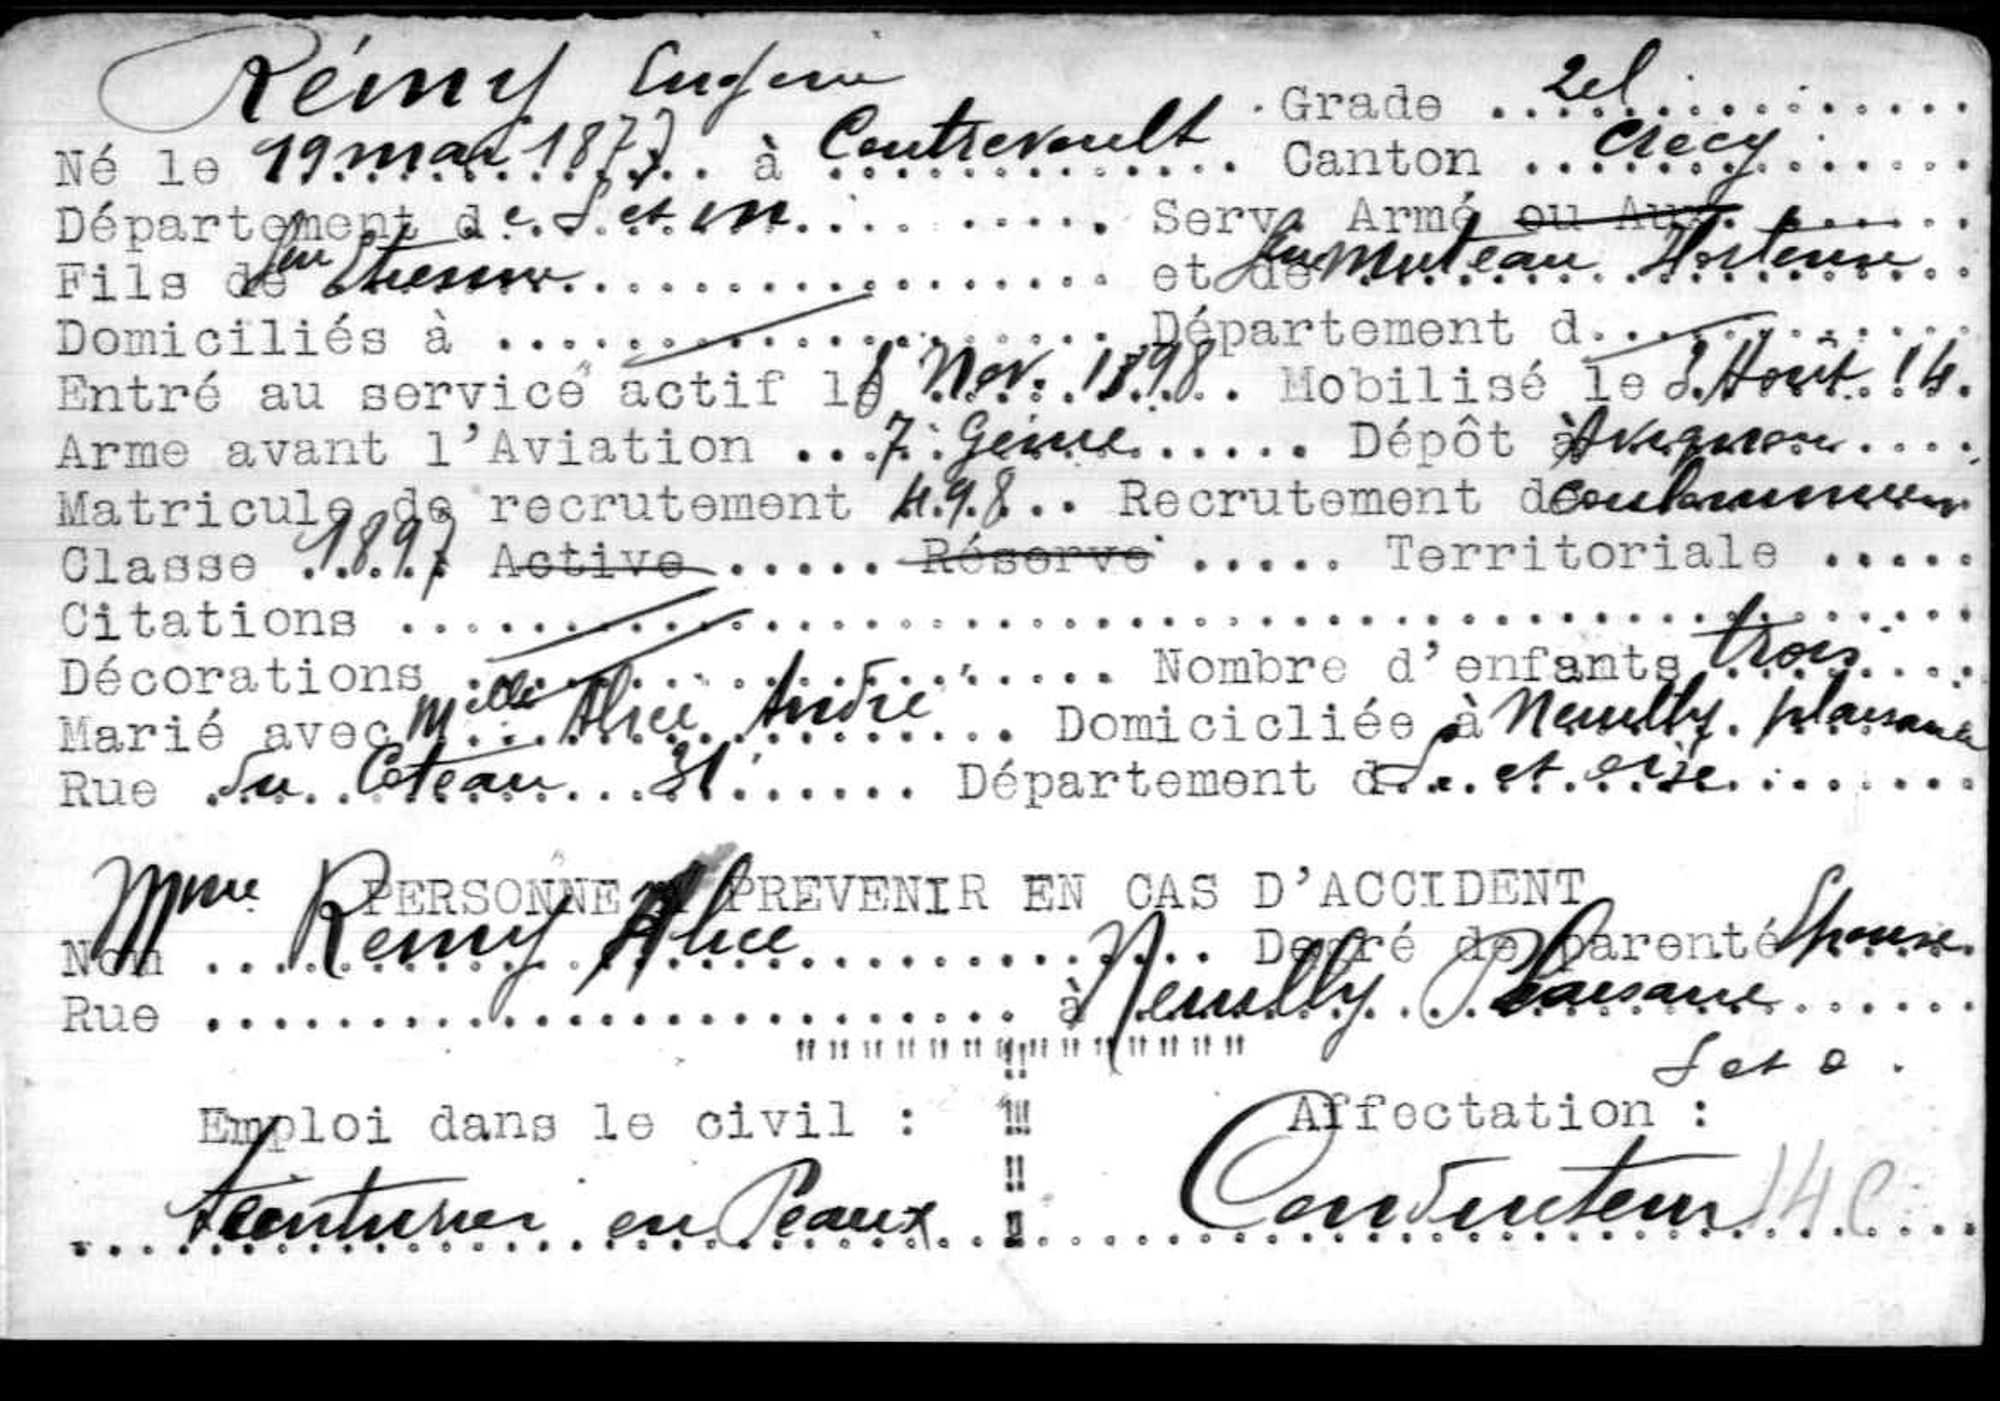 Rémy Eugène Grade .. 2el
Né le 19 mai 1877 à Coutrevoult Canton .. Crécy
Département de S et M Serv. Armé ou Aux
Fils de feu Etienne et de feu Muteau Hortense
Domiciliés à Département d
Entré au service actif le 8 Nov. 1898 Mobilisé le 3 Août 14
Arme avant l'Aviation 7. Génie Dépôt à Avignon
Matricule de recrutement 498 Recrutement de Coulommiers
Classe 1897 Active Réserve Territoriale
Citations
Décorations Nombre d'enfants trois
Marié avec Melle Alice André Domicicliée à Neuilly. plaisance
Rue du Coteau 31 Département de S. et oise
PERSONNE A PREVENIR EN CAS D'ACCIDENT
Nom Mme Remy Alice Degré de parenté Epouse
Rue à Neuilly Plaisance
S et O.
Emploi dans le civil : Affectation :
teinturier en Peaux Conducteur 14 C